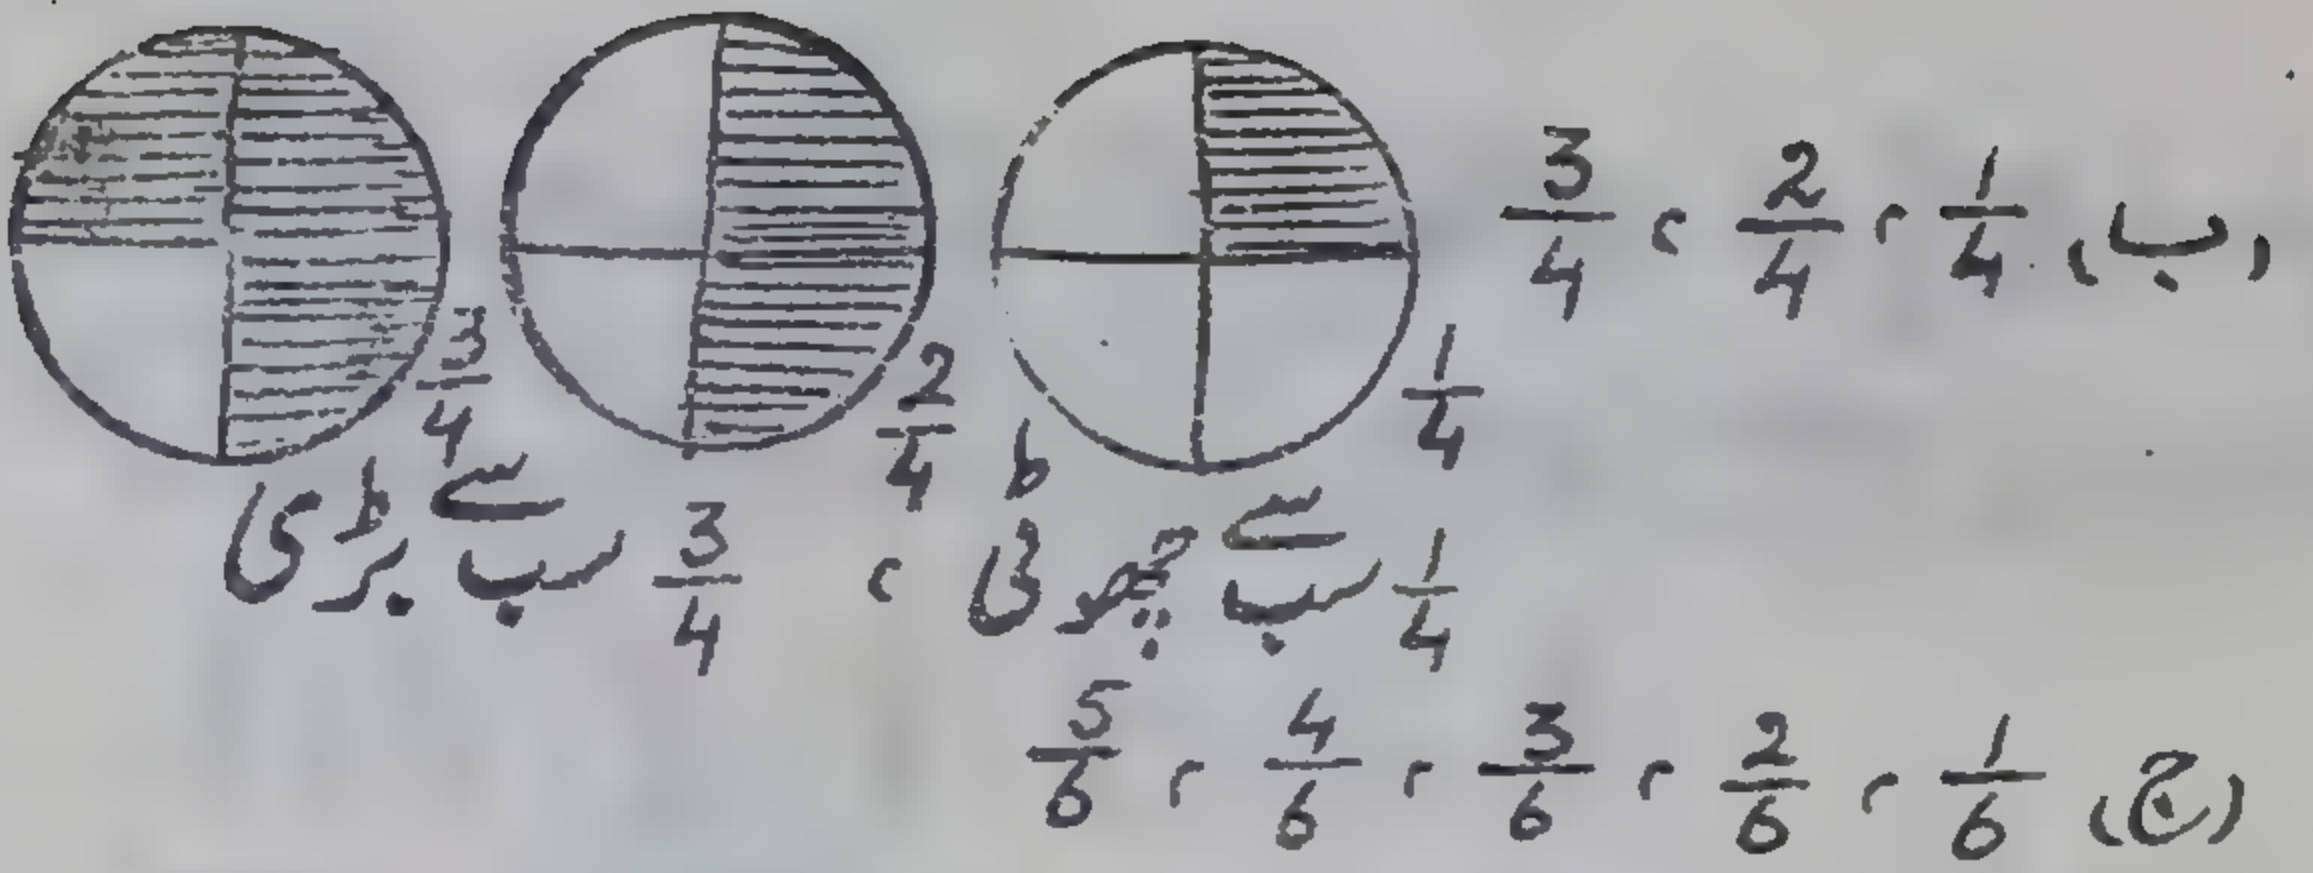 (ب) 1/4 ، 2/4 ، 3/4
1/4
2/4
3/4
1/4 سب سے چھوٹی ، 3/4 سب سے بڑی
(ج) 1/6 ، 2/6 ، 3/6 ، 4/6 ، 5/6